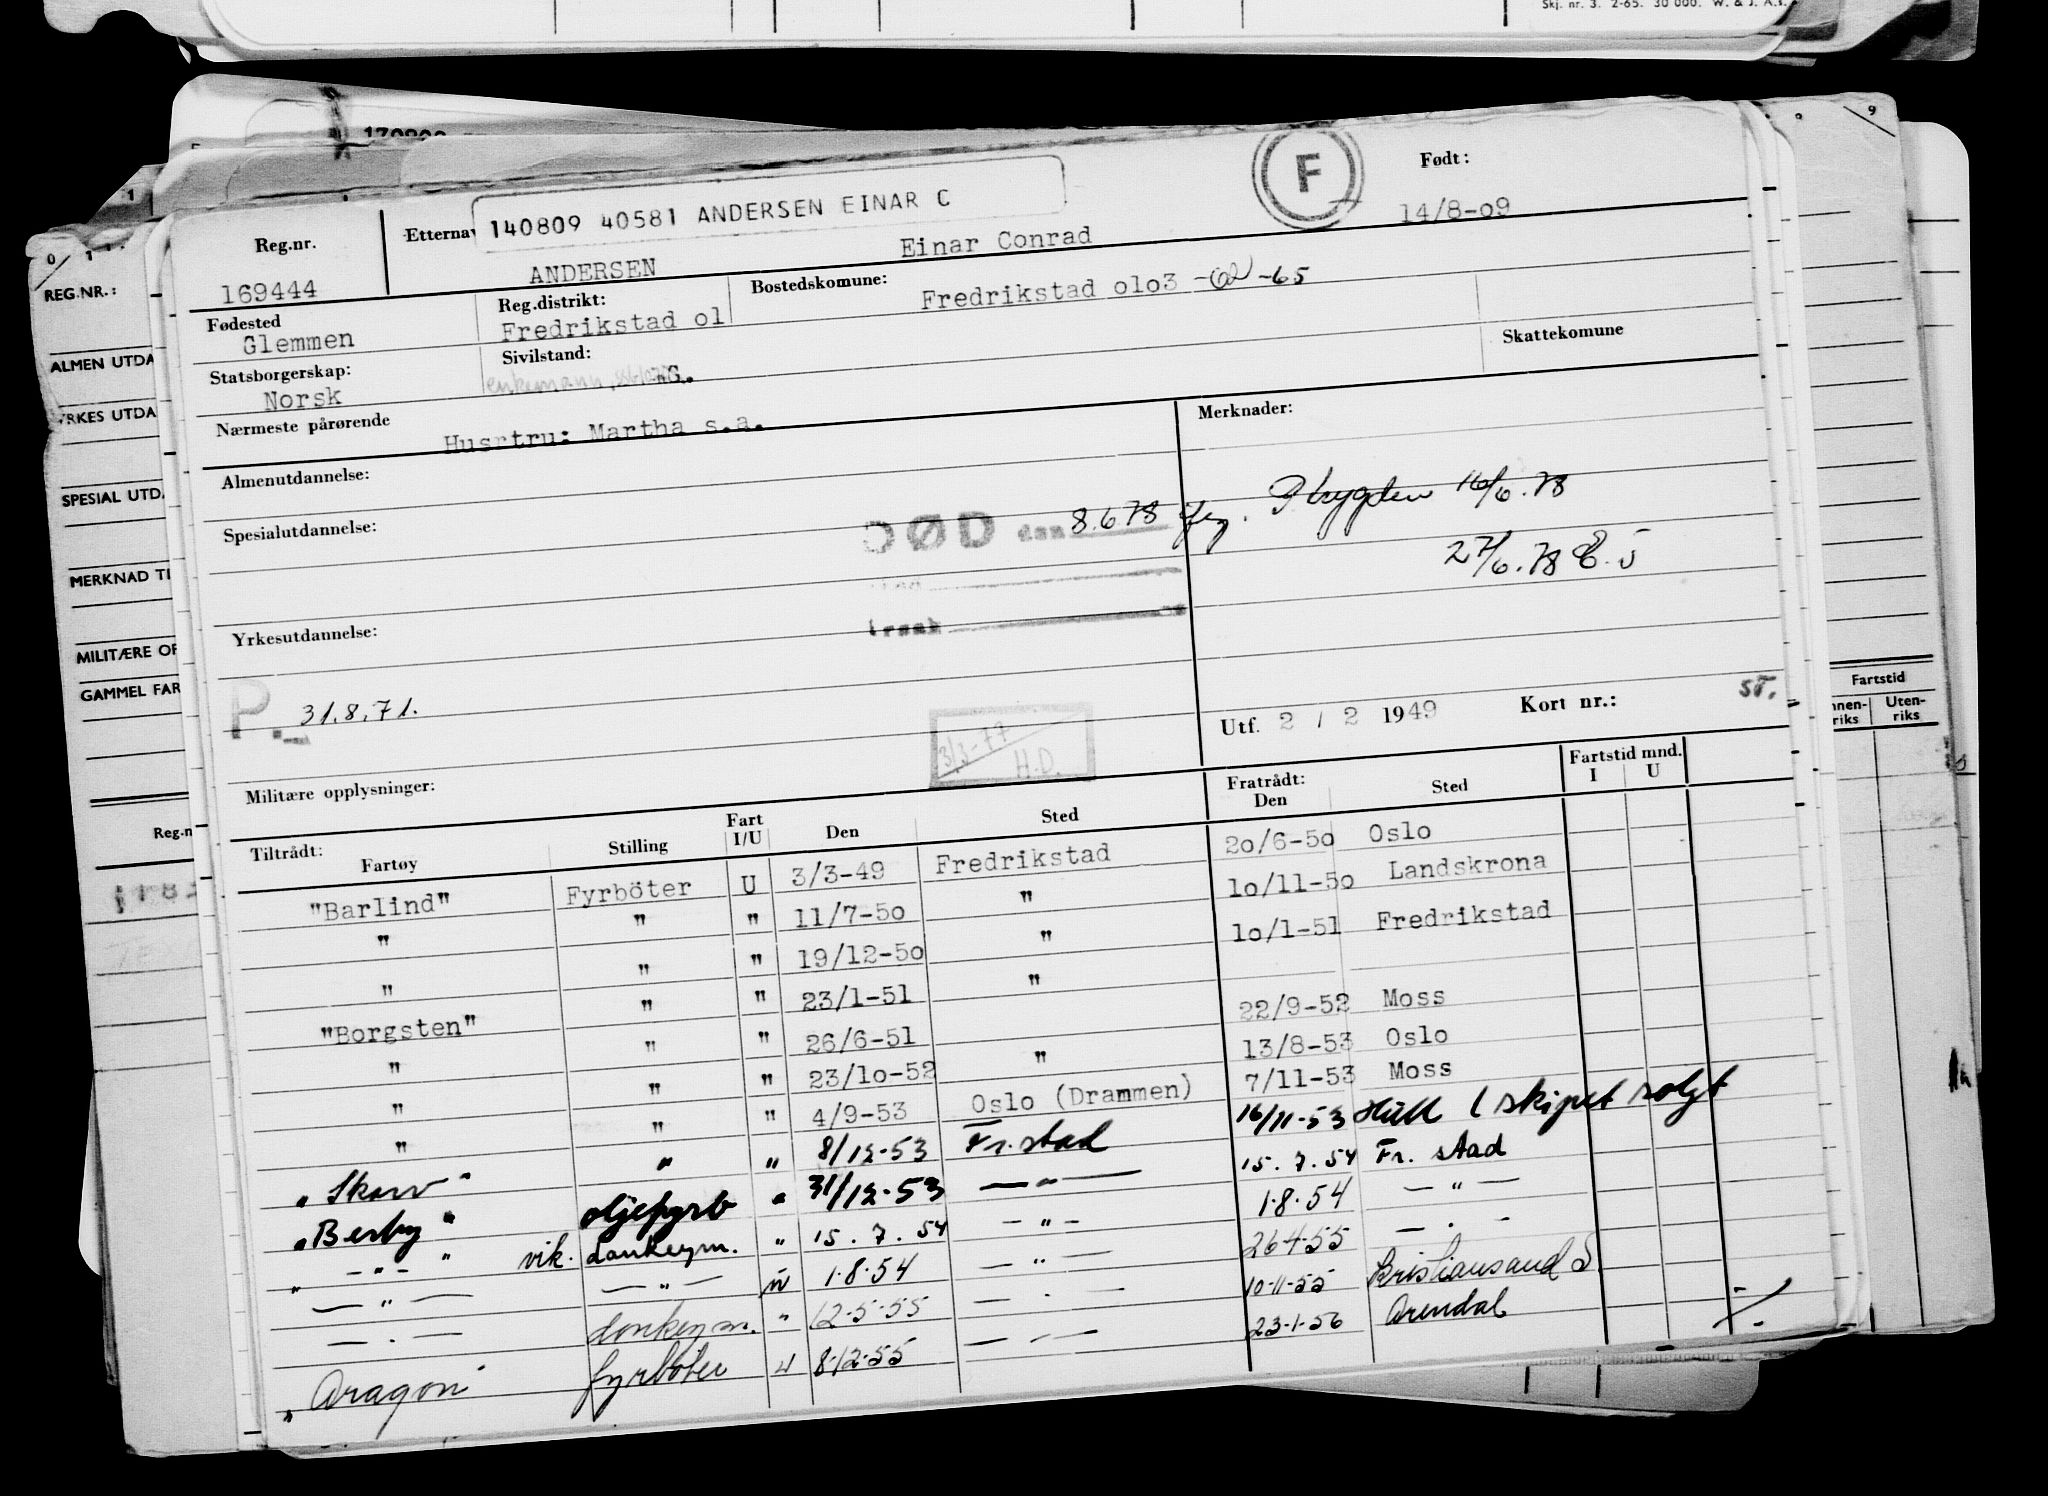 Skj. nr. 3. 2-65. 30 000. W. & J. A.s.
9
0 1
1
REG.NR.:
ALMEN UTDA
YRKES UTDA
SPESIAL UTDA
MERKNAD TI
MILITÆRE OP
GAMMEL FAR
Reg.n
Fartstid
Innen-riks Uten-riks
Reg.nr. Etternav 140809 40581 ANDERSEN EINAR C F Født:
169444 ANDERSEN Einar Conrad 14/8-09
Fødested Reg.distrikt: Bostedskomune:
Glemmen Fredrikstad ol Fredrikstad olo3 -62 -65
Statsborgerskap: Sivilstand: Skattekomune
Norsk enkemann, G.
Nærmeste pårørende Husrtru: Martha s.a. Merknader:
Almenutdannelse:
Spesialutdannelse: DØD den 8.6.78 16/6.78
27/6.78 E.J
Yrkesutdannelse: årsak
P. 31.8.71.
3/3-77 H.D.
Utf. 2 / 2 1949 Kort nr.: ST.
Militære opplysninger:
Tiltrådt: Fartøy Stilling Fart I/U Den Sted Fratrådt: Den Sted Fartstid mnd. I U
"Barlind" Fyrböter U 3/3-49 Fredrikstad 20/6-50 Oslo
" " " 11/7-50 " 10/11-50 Landskrona
" " " 19/12-50 " 10/1-51 Fredrikstad
"Borgsten" " " 23/1-51 "
" " " 26/6-51 22/9-52 Moss
" " " 23/10-52 " 13/8-53 Oslo
" " " 4/9-53 Oslo (Drammen) 7/11-53 Moss
"Skarv" " " 8/12-53 Fr.stad 16/11-53 Hull (skipet solgt
"Berby" oljefyrb " 31/12-53 — " — 15.7.54 Fr. stad
" — " — " vik. donkeym. " 15.7.54 — " — 1.8.54 — " —
— " — — " — " 1.8.54 — " — 26-4-55 — " —
— " — donkeym. " 12-5-55 — " — 10-11-55 Kristiansand S.
"Aragon" fyrböter U 8-12-55 — " — 23-1-56 Arendal